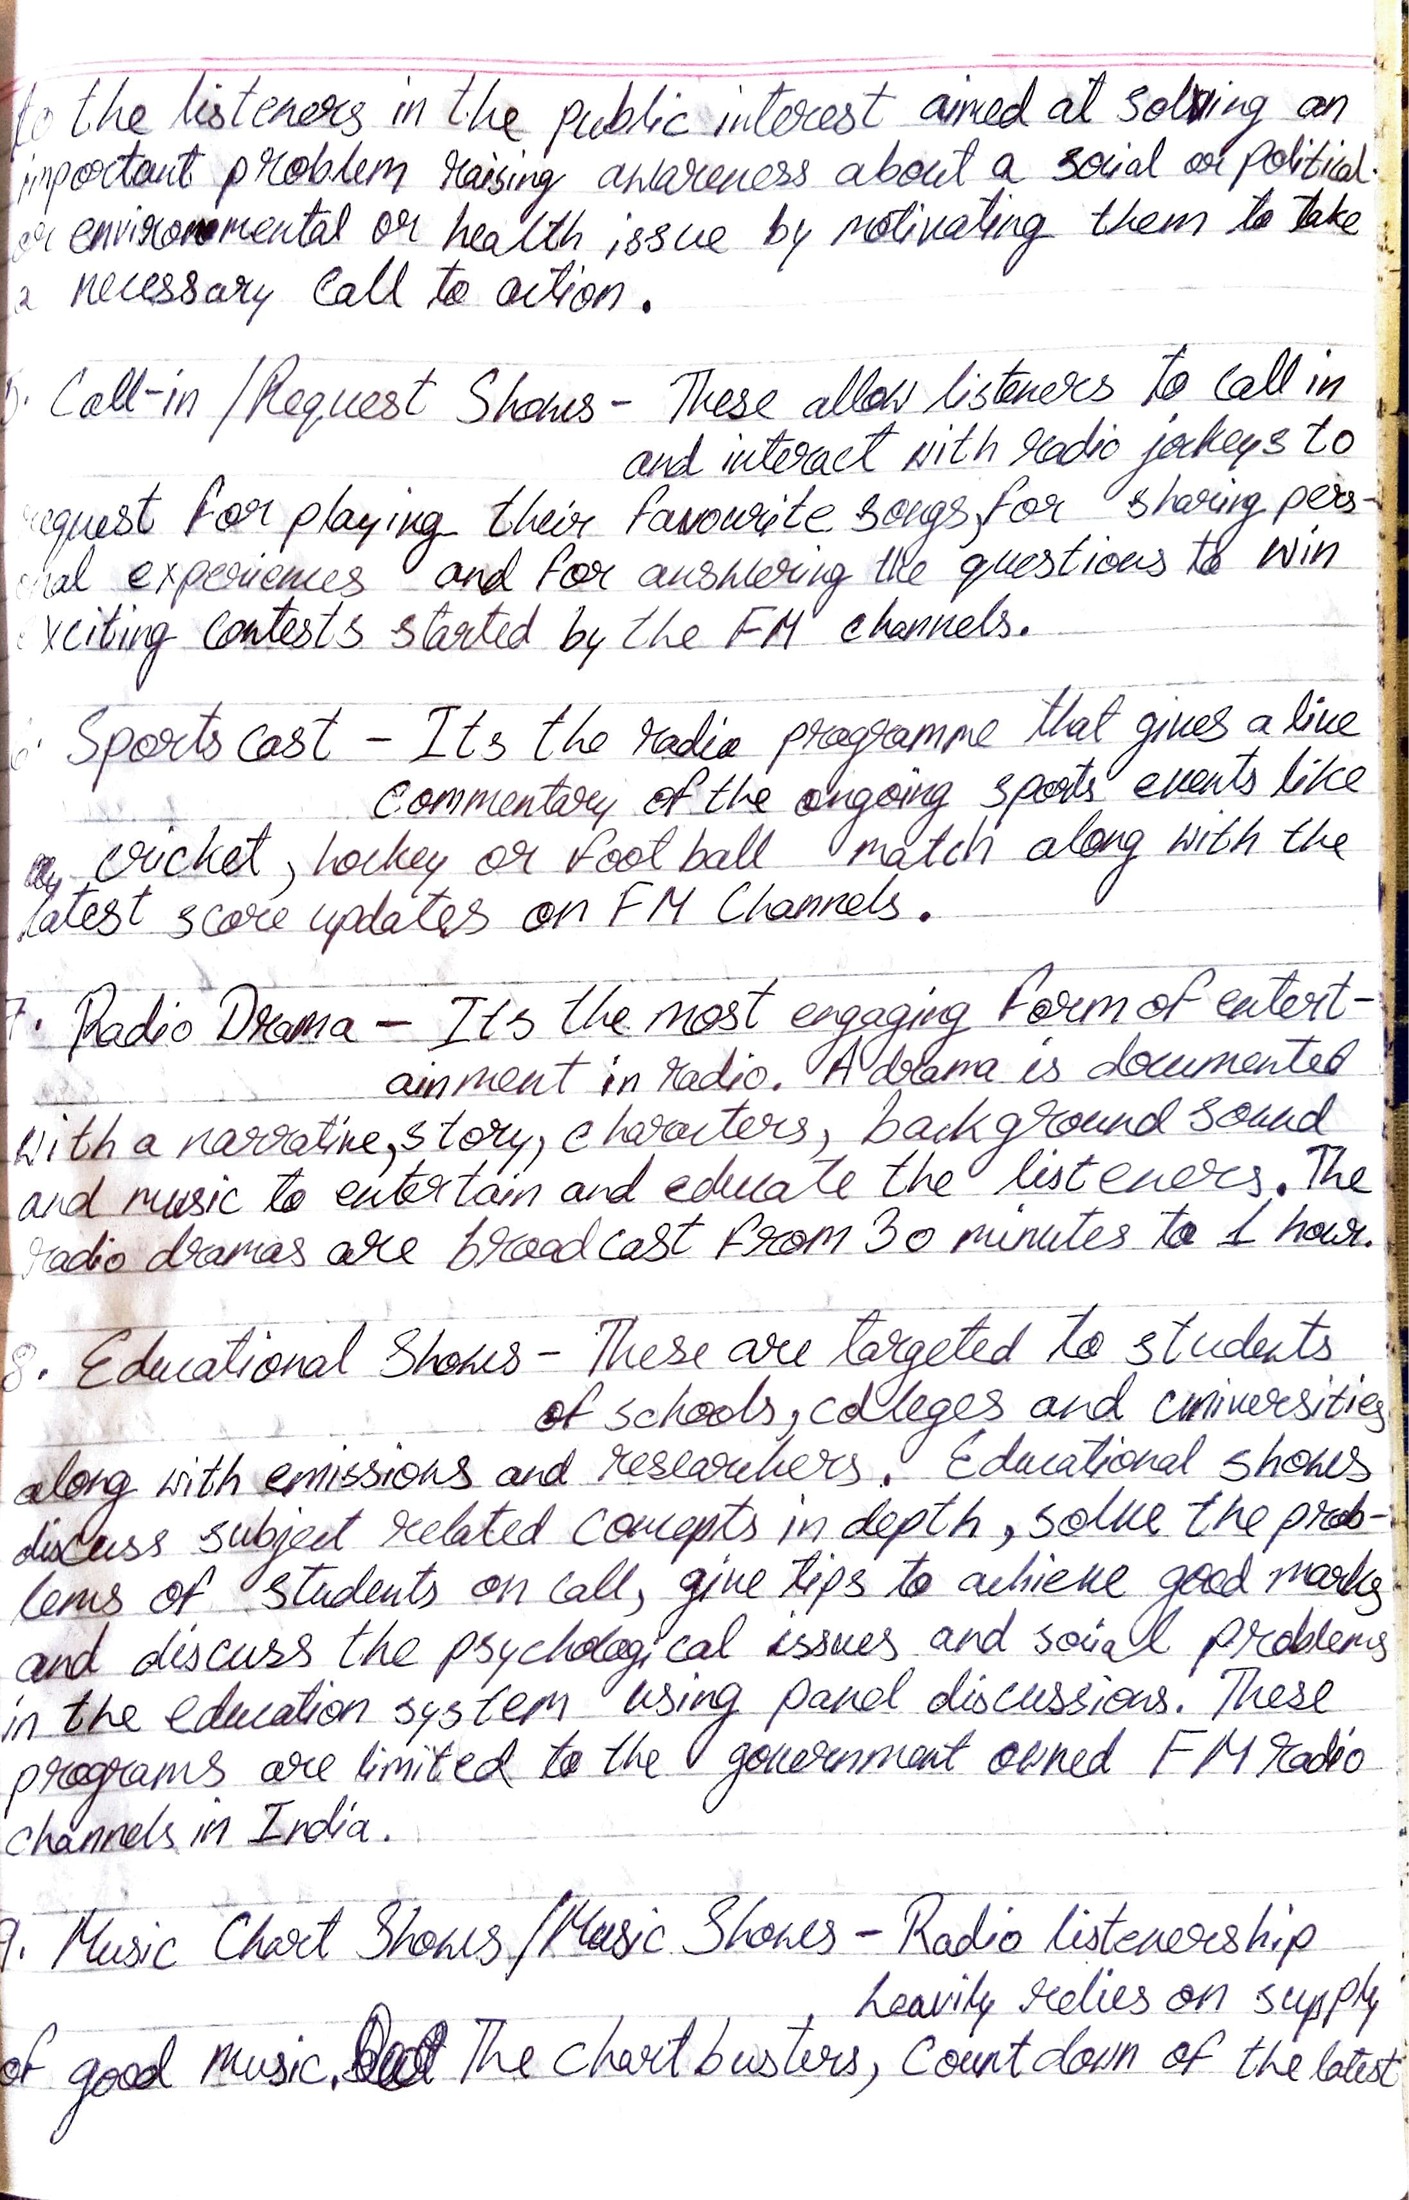 to the listeners in the public interest aimed at solving an
important problem raising awareness about a social or political
or environmental or health issue by motivating them to take
a necessary call to action.
5. Call-in / Request Shows - These allow listeners to call in
and interact with radio jockeys to
request for playing their favourite songs, for sharing pers-
onal experiences and for answering the questions to win
exciting contests started by the FM channels.
6. Sports cast - Its the radio programme that gives a live
commentary of the ongoing sports events like
cricket, hockey or foot ball match along with the
latest score updates on FM Channels.
7. Radio Drama - Its the most engaging form of entert-
ainment in radio. A drama is documented
with a narrative, story, characters, background sound
and music to entertain and educate the listeners. The
radio dramas are broadcast from 30 minutes to 1 hour.
8. Educational Shows - These are targeted to students
of schools, colleges and universities
along with emissions and researchers. Educational shows
discuss subject related concepts in depth, solve the prob-
lems of students on call, give tips to achieve good marks
and discuss the psychological issues and social problems
in the education system using panel discussions. These
programs are limited to the government owned FM radio
channels in India.
9. Music Chart Shows / Music Shows - Radio listenership
heavily relies on supply
of good music. The Chart busters, Count down of the latest